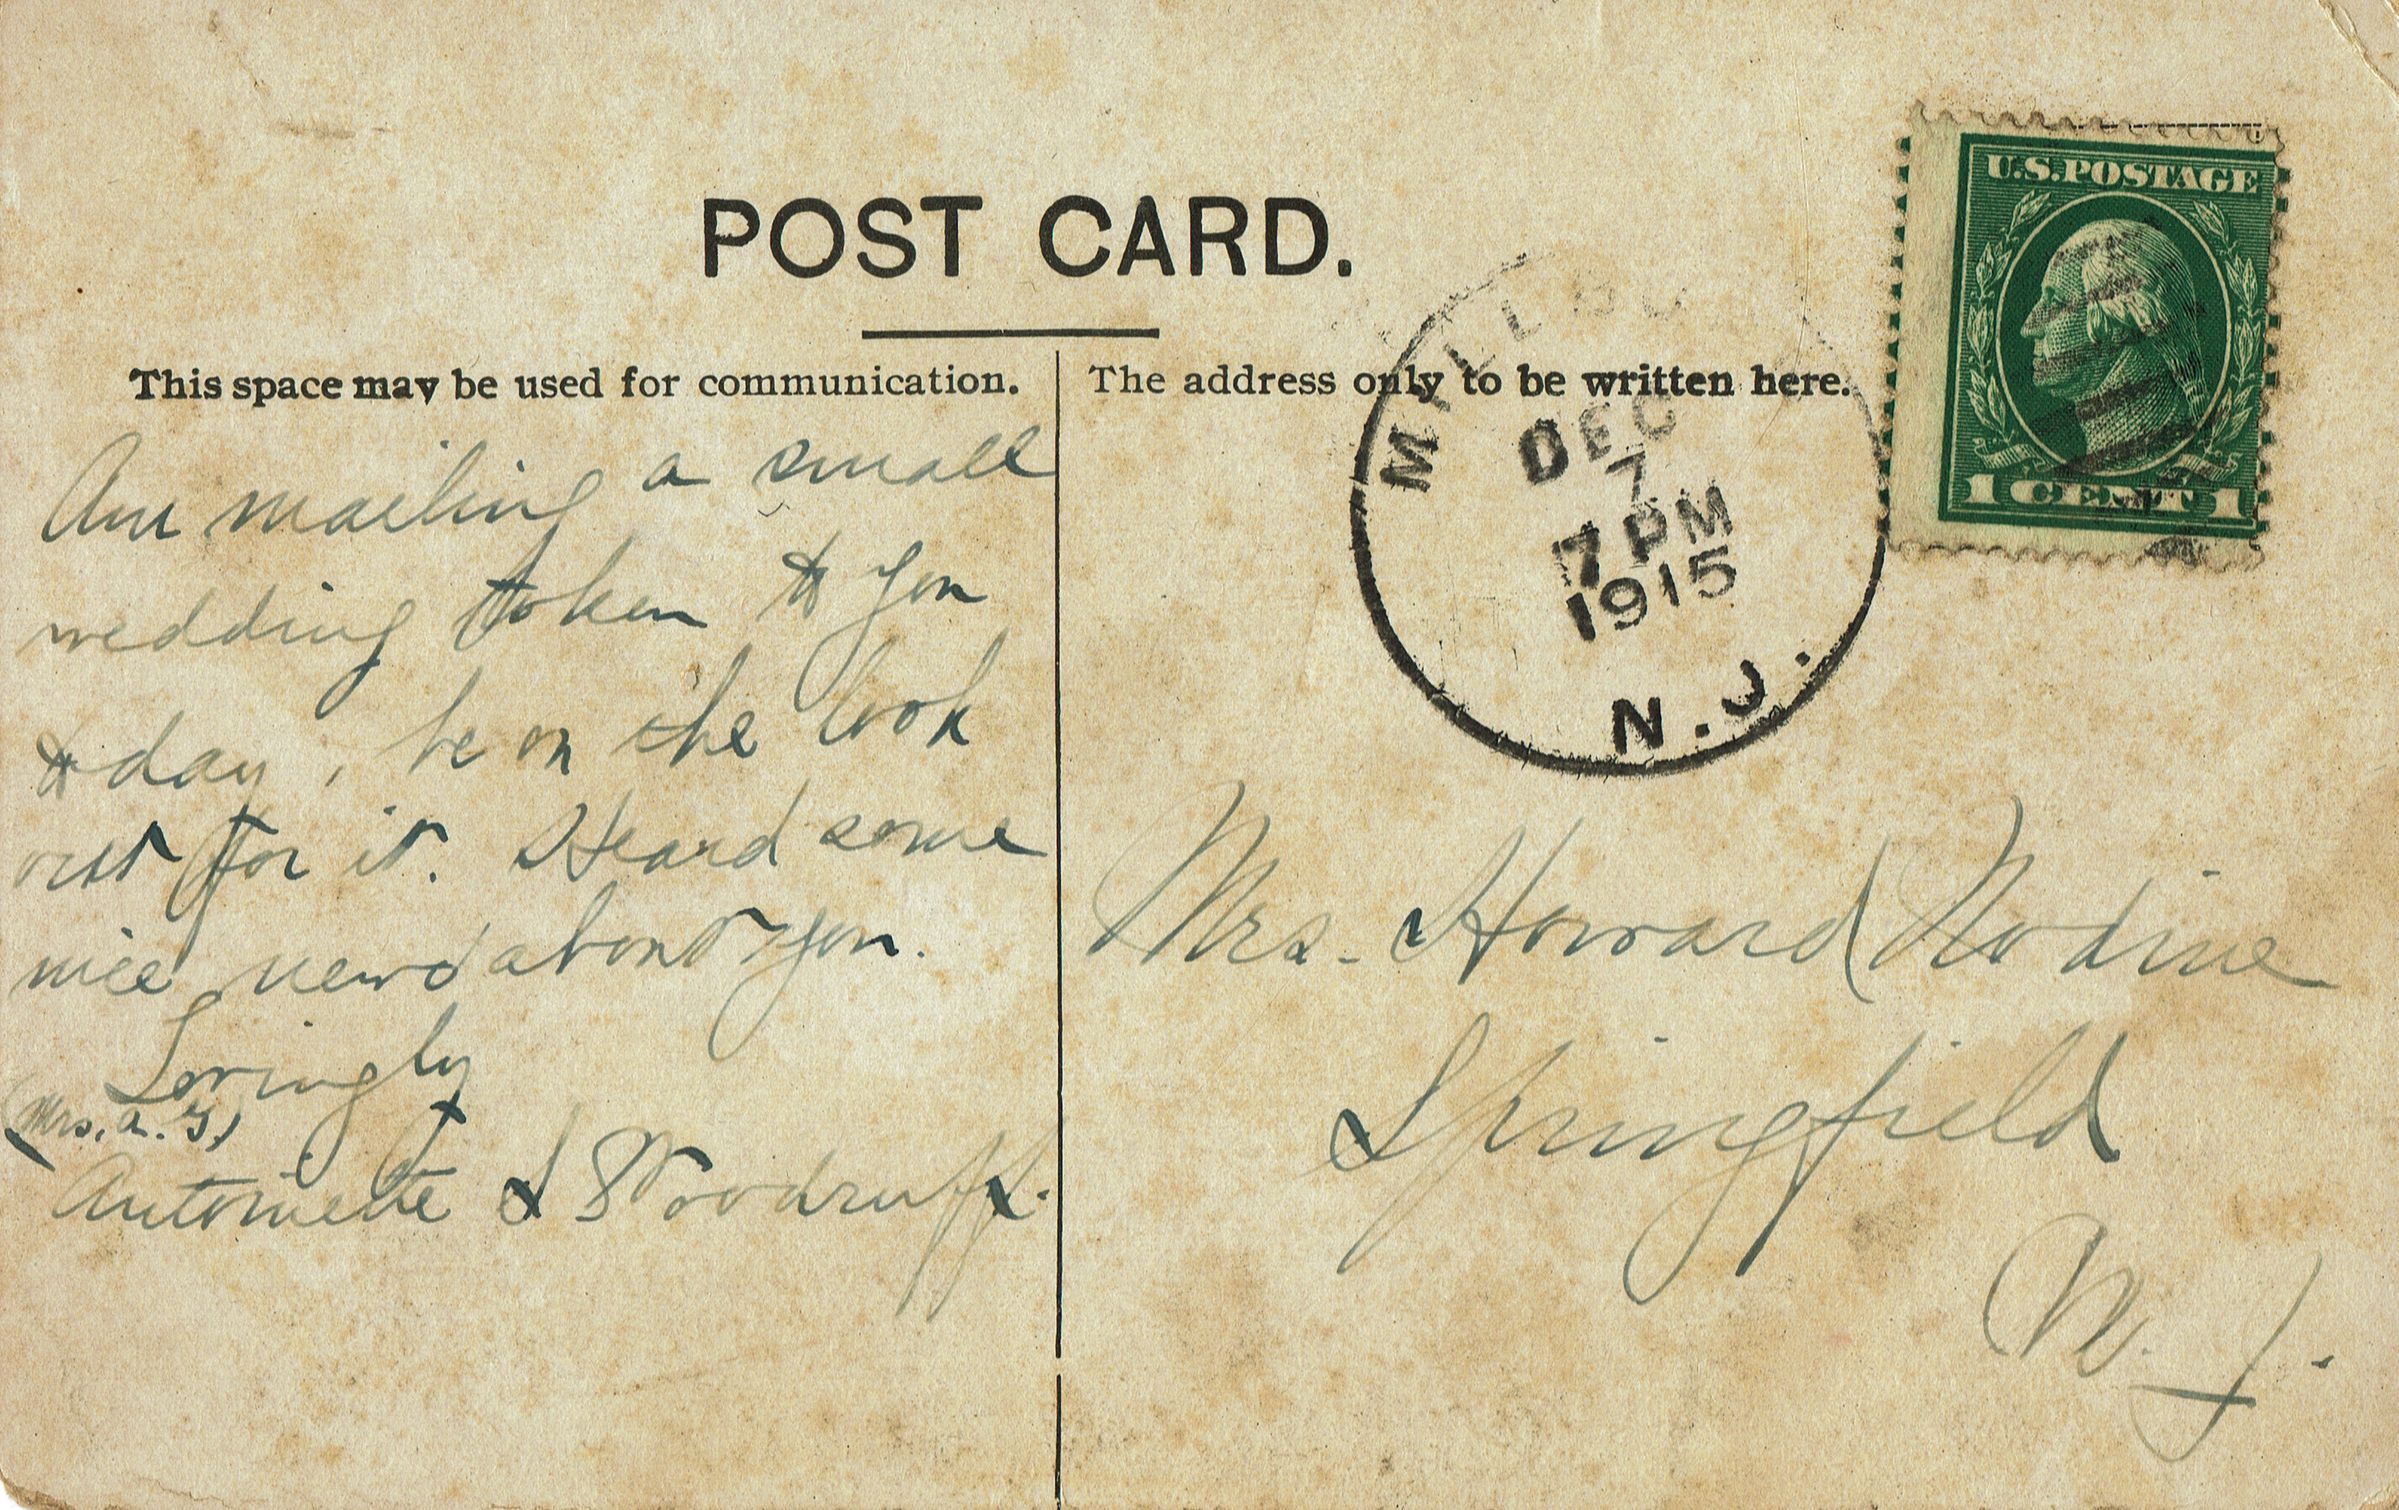 POST CARD.
This space may be used for communication.
The address only to be written here.
Am mailing a small
wedding token to you
today, be on the look
out for it. Heard some
nice news about you.
Lovingly
(Mrs. A. G.)
Antoinette S Woodruff.
U.S. POSTAGE
1 CENT 1
DEC
7
7 PM
1915
N.J.
Mrs. Howard Nodine
Springfield
N. J.